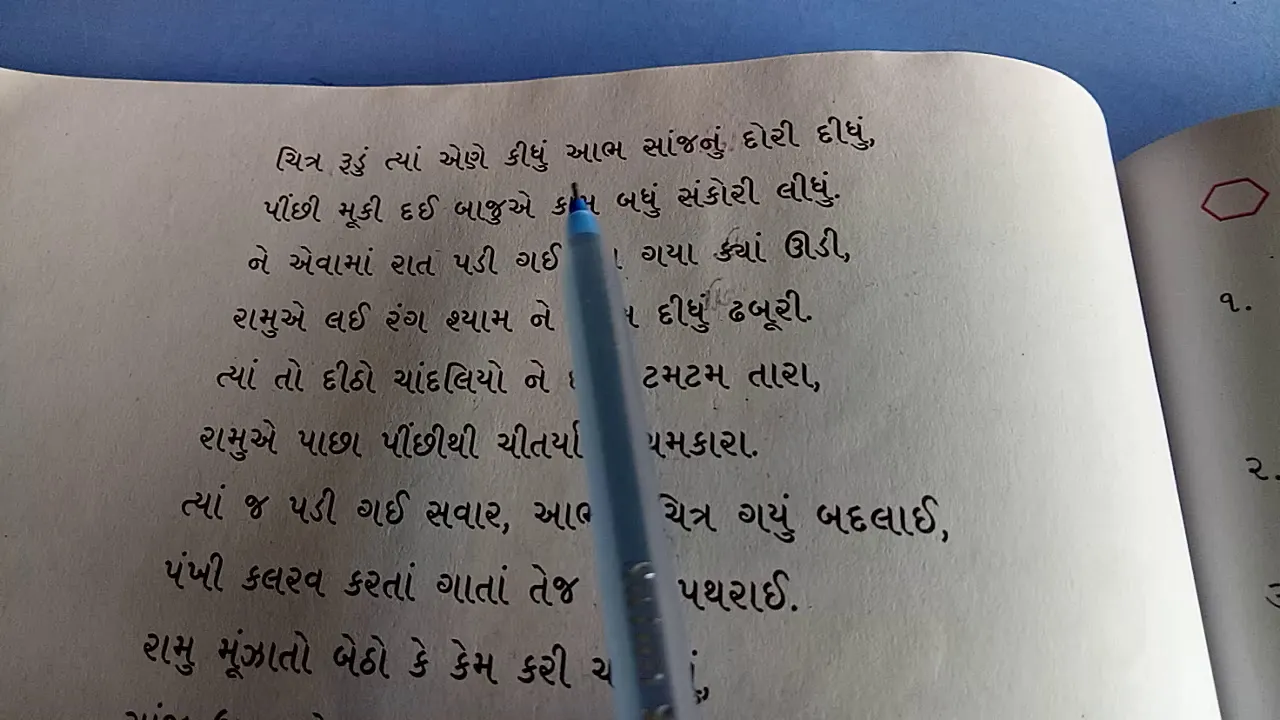 ચિત્ર રૂડું ત્યાં એણે કીધું આભ સાંજનું દોરી દીધું,
પીંછી મૂકી દઈ બાજુએ કામ બધું સંકોરી લીધું.
ને એવામાં રાત પડી ગઈ ગયા ક્યાં ઊડી,
રામુએ લઈ રંગ શ્યામ ને દીધું ઢબૂરી.
ત્યાં તો દીઠો ચાંદલિયો ને ટમટમ તારા,
રામુએ પાછા પીંછીથી ચીતર્યા ચમકારા.
ત્યાં જ પડી ગઈ સવાર, ચિત્ર ગયું બદલાઈ,
પંખી કલરવ કરતાં ગાતાં તેજ પથરાઈ.
રામુ મૂંઝાતો બેઠો કે કેમ કરી
૧.
૨.